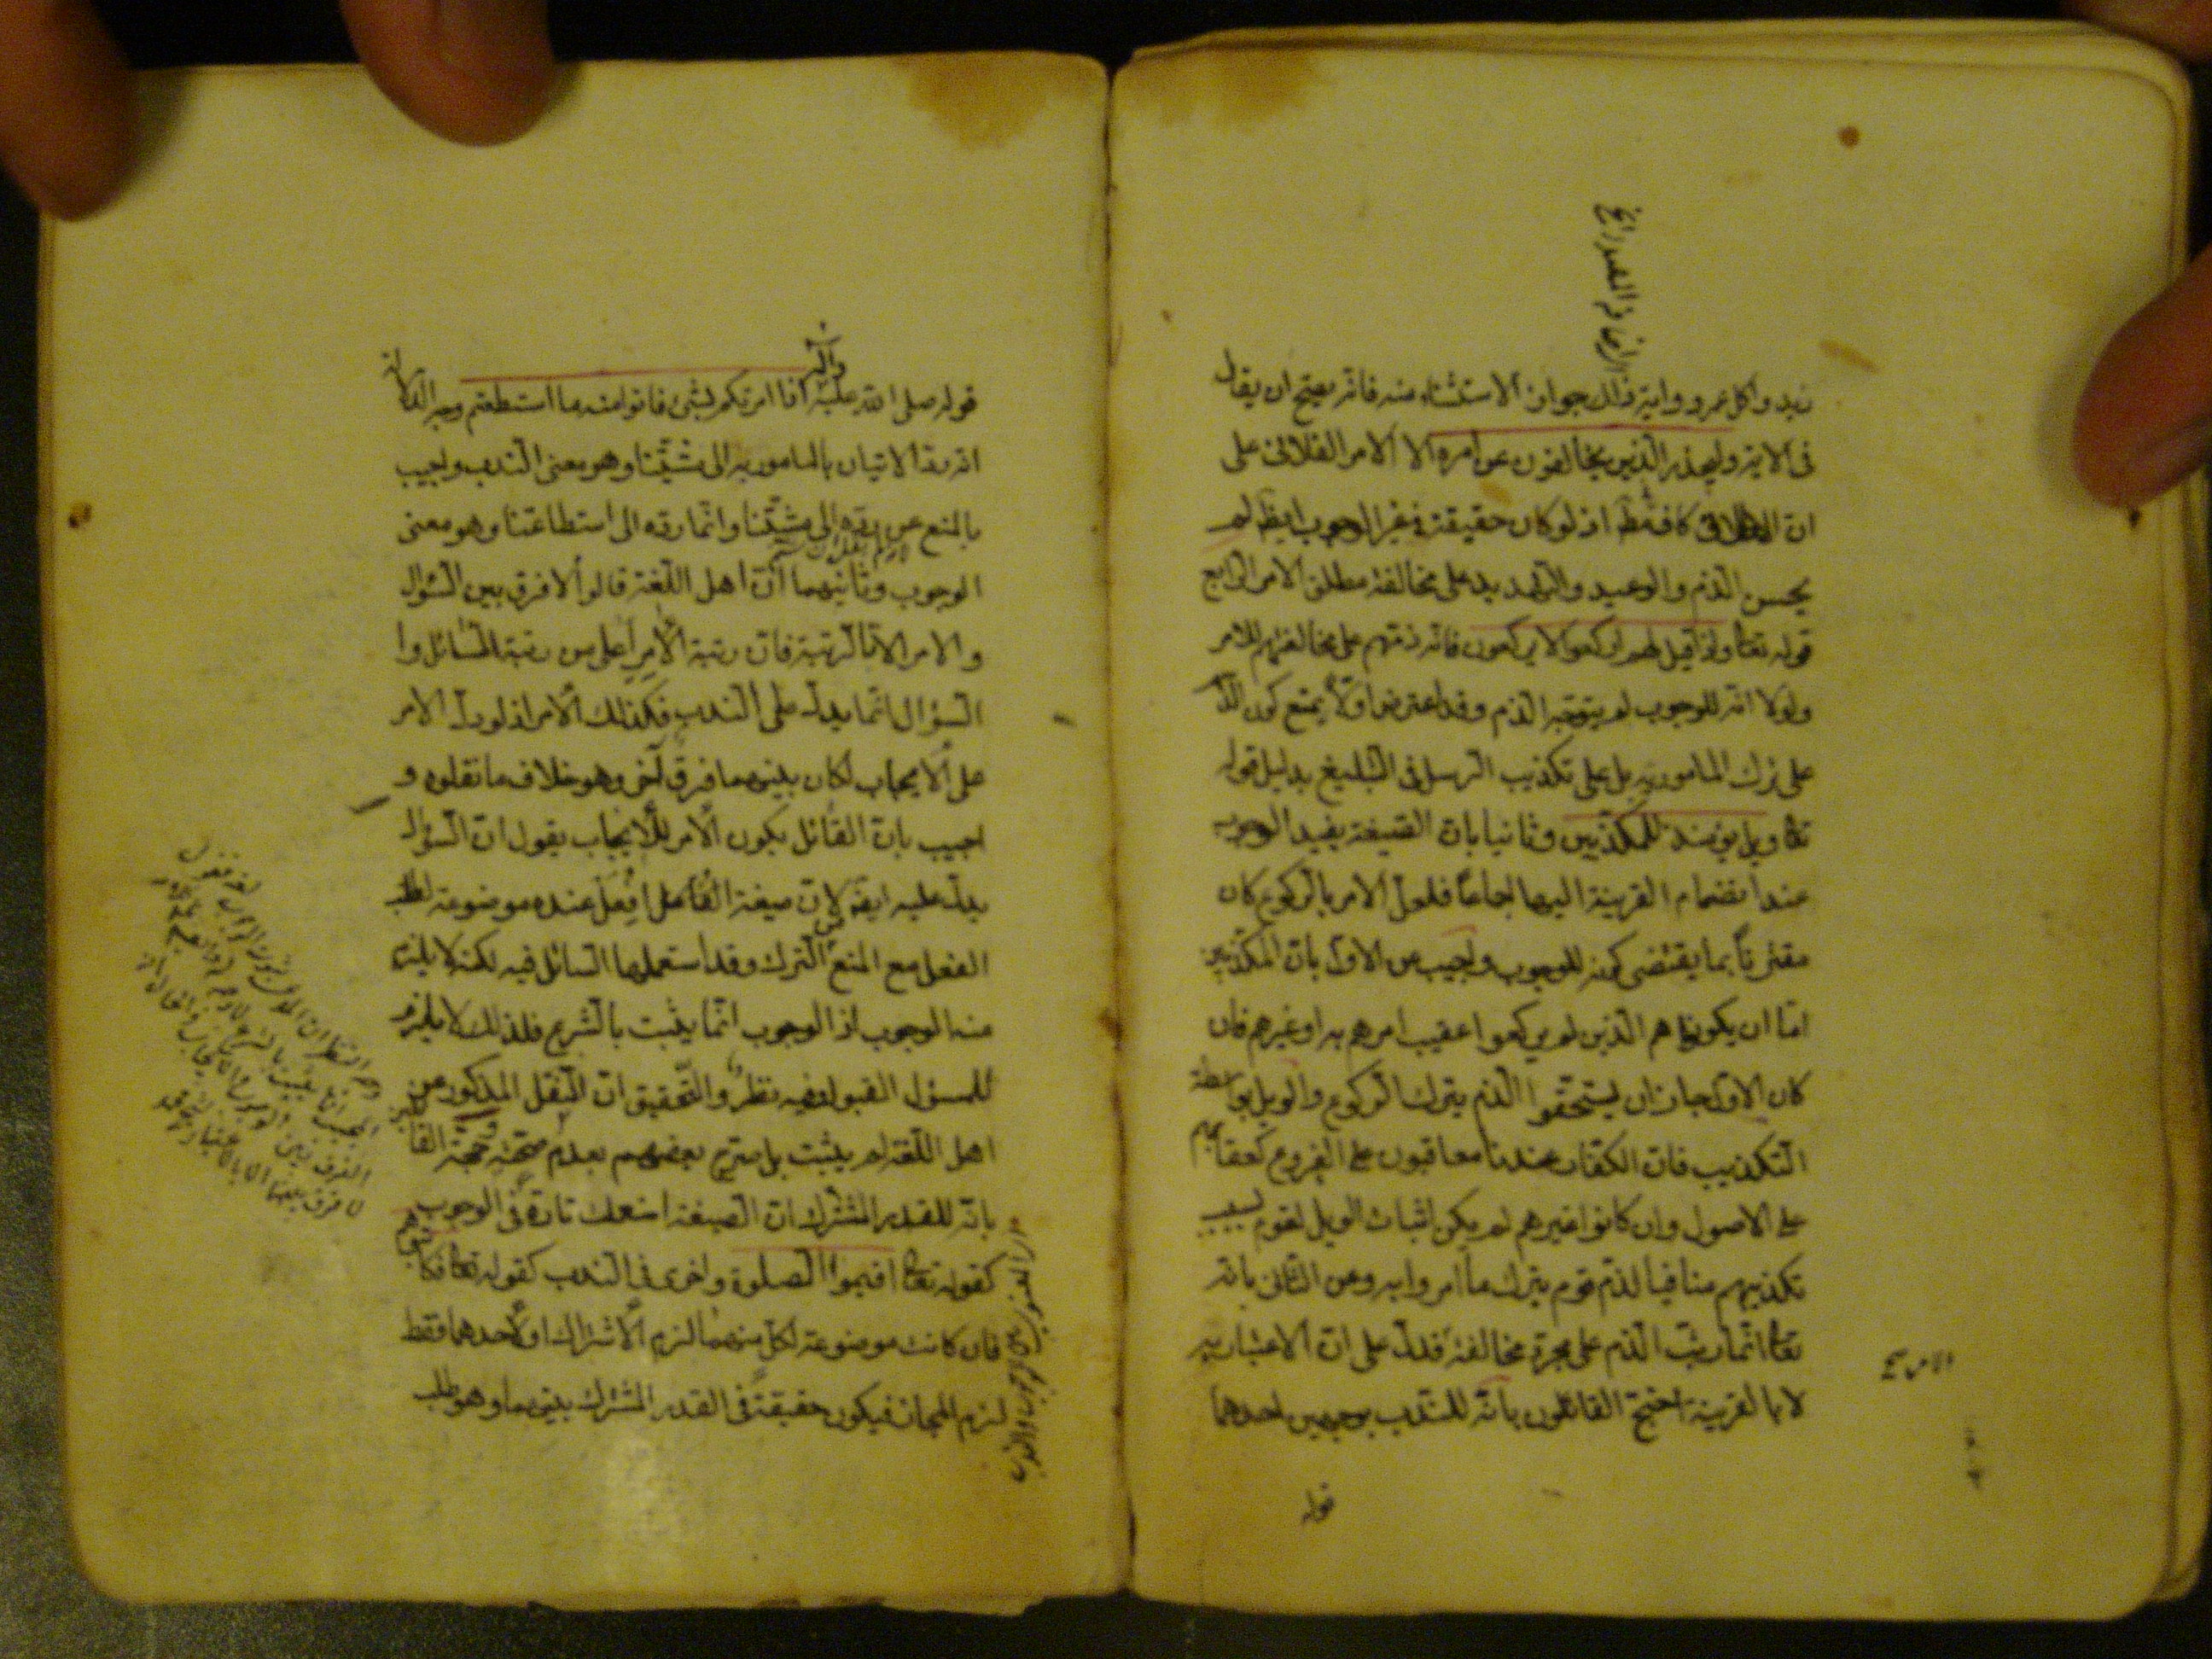 زيد واكل عمرو واية ذلك جواز الاستثناء منه فانه يصح ان يقال
فى الاية وليحذر الذين يخالفون عن امره الا الامر الفلانى على
ان الاطلاق كاف اذ لو كان حقيقة فى غير الوجوب ايضا لم
يحسن الذم والوعيد والتهديد على مخالفة مطلق الامر الرابع
قوله تعالى واذا قيل لهم اركعوا لا يركعون فانه ذمهم على مخالفتهم للامر
ولولا انه للوجوب لم يتوجه الذم وقد اعترض اولا بمنع كون الذم
على ترك المامور به بل على تكذيب الرسل فى التبليغ بدليل قوله
تعا ويل يومئذ للمكذبين وثانيا بان الصيغة يفيد الوجوب
عند انضمام القرينة اليها اجماعا فلعل الامر بالركوع كان
مقترنا بما يقتضى كونه للوجوب واجيب عن الاول بان المكذبين
اما ان يكونوا هم الذين لم يركعوا عقيب امرهم به او غيرهم فان
كان الاول جاز ان يستحقوا الذم بترك الركوع والويل بواسطة
التكذيب فان الكفار عندنا معاقبون على الفروع كعقابهم
على الاصول وان كانوا غيرهم لم يكن اثبات الويل لقوم بسبب
تكذيبهم منافيا لذم قوم بترك ما امروا به وعن الثانى بانه
تعا انما رتب الذم على مجرد مخالفة فدل على ان الاعتبار به
لا بالقرينة احتج القائلون بانه للندب بوجهين احدهما
الامر صح
قوله
قوله صلى الله عليه واله اذا امرتكم بشئ فاتوا منه ما استطعتم وجه الدلالة
انه رد الاتيان بالمامور به الى مشيتنا وهو معنى الندب واجيب
بالمنع عن رده الى مشيتنا وانما رده الى استطاعتنا وهو معنى
الوجوب وثانيهما ان اهل اللغة قالوا لا فرق بين السؤال
والامر الا بالرتبة فان رتبة الامر اعلى من رتبة السائل و
السؤال انما يدل على الندب فكذلك الامر اذ لو دل الامر
على الايجاب لكان بينهما فرق آخر وهو خلاف ما نقلوه و
اجيب بان القائل بكون الامر للايجاب يقول ان السؤال
يدل عليه ايضا لان صيغة افعل عنده موضوعة لطلب
الفعل مع المنع من الترك وقد استعملها السائل فيه لكنه لا يلزم
منه الوجوب اذ الوجوب انما يثبت بالشرع فلذلك لا يلزم
للمسؤل القبول وفيه نظر والتحقيق ان النقل المذكور عن
اهل اللغة لم يثبت بل صرح بعضهم بعدم صحته حجة القائلين
بانه للقدر المشترك ان الصيغة استعملت تارة فى الوجوب
كقوله تعا اقيموا الصلوة واخرى فى الندب كقوله تعا فكاتبوهم
فان كانت موضوعة لكل منهما لزم الاشتراك او لاحدهما فقط
لزم المجاز فيكون حقيقة فى القدر المشترك بينهما وهو طلب